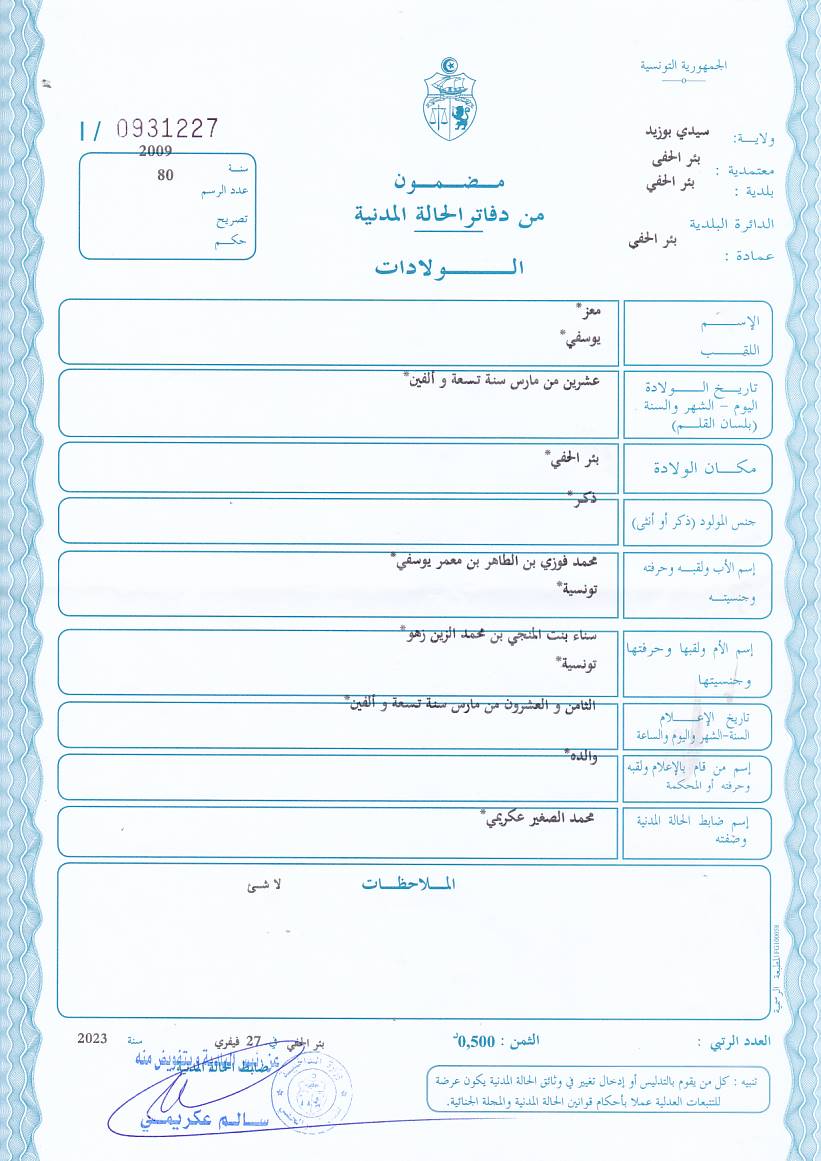 الجمهورية التونسية
ولاية: سيدي بوزيد
معتمدية : بئر الحفي
بلدية : بئر الحفي
الدائرة البلدية
عمادة : بئر الحفي
I / 0931227
سنة 2009
عدد الرسم 80
تصريح
حكم
مضمون
من دفاتر الحالة المدنية
الولادات
الإسم معز*
اللقب يوسفي*
تاريخ الولادة عشرين من مارس سنة تسعة و ألفين*
اليوم – الشهر والسنة
(بلسان القلم)
مكان الولادة بئر الحفي*
جنس المولود (ذكر أو أنثى) ذكر*
إسم الأب ولقبه وحرفته محمد فوزي بن الطاهر بن معمر يوسفي*
وجنسيته تونسية*
إسم الأم ولقبها وحرفتها سناء بنت المنجي بن محمد الزين زهو*
وجنسيتها تونسية*
تاريخ الإعلام الثامن و العشرون من مارس سنة تسعة و ألفين*
السنة-الشهر واليوم والساعة
إسم من قام بالإعلام ولقبه والده*
وحرفته أو المحكمة
إسم ضابط الحالة المدنية محمد الصغير عكريمي*
وصفته
الملاحظات لا شئ
المطبعة الرسمية
العدد الرتبي :
الثمن : 0,500د
بئر الحفي في 27 فيفري سنة 2023
عن رئيس البلدية وبتفويض منه
ضابط الحالة المدنية
سالم عكريمي
تنبيه : كل من يقوم بالتدليس أو إدخال تغيير في وثائق الحالة المدنية يكون عرضة
للتتبعات العدلية عملا بأحكام قوانين الحالة المدنية والمجلة الجنائية.